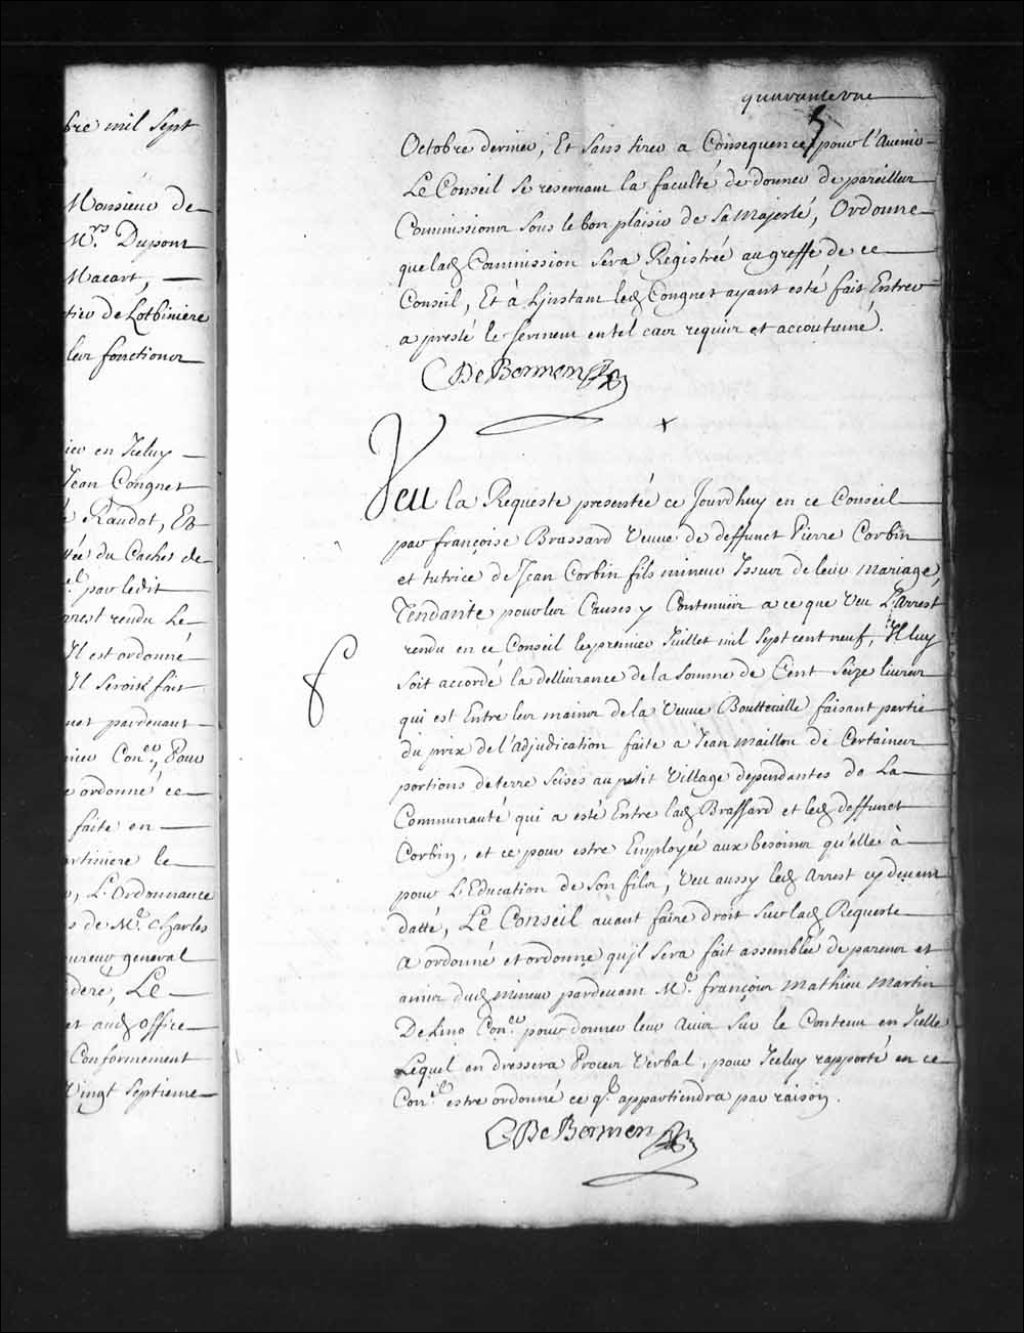 bre mil Sept
Monsieur de
Mrs. Dupont
Macart,
tier de Lotbiniere
leur fonctions
ier en Iceluy
Jean Congnet
Raudot, Et
du Cachet de
par ledit
arrest rendu Le
Il est ordonné
Il seroit fait
net pardevant
nier Coner, Pour
ordonné ce
faite en
artiniere le
L'Ordonnance
s de Me. Charles
ureur general
deré, Le
et aud office
Conformement
Vingt Septieme
quarante une
5
Octobre dernier, Et Sans tirer a Consequence pour l'Avenir
Le Conseil se reservant la faculté de donner de pareilles
Commissions sous le bon plaisir de sa Majesté, Ordonne
que lad Commission sera Registrée au greffe de ce
Conseil, Et à L'instant led Congnet ayant esté fait Entrer
a presté le serment en tel cas requis et accoutumé.
C De Bermen
x
Veu la Requeste presentée ce Jourdhuy en ce Conseil
par françoise Brassard Veuve de deffunct Pierre Corbin
et tutrice de Jean Corbin fils mineur Issus de leur mariage,
Tendante pour les Causes y Contenües a ce que Veu L'Arrest
rendu en ce Conseil le premier Juillet mil Sept cent neuf, Il luy
soit accordé la dellivrance de la somme de Cent Seize livres
qui est Entre les mains de la Veuve Boutteville faisant partie
du prix de l'adjudication faite a Jean Maillou de Certaines
portions de terre scises au petit Village dependantes de La
Communauté qui a esté Entre lad Brassard et led deffunct
Corbin, et ce pour estre Employée aux besoins qu'elle à
pour L'Education de son fils, Veu aussy led Arrest cy devant
datté, Le Conseil avant faire droit sur lad Requeste
a ordonné et ordonne qu'il sera fait assemblée de parens et
amis dud mineur pardevant Me. françois Mathieu Martin
De Lino Coner. pour donner leur Avis sur le Contenu en Icelle
Lequel en dressera Procez Verbal, pour Iceluy rapporté en ce
Conel. estre ordonné ce ql. appartiendra par raison.
C De Bermen